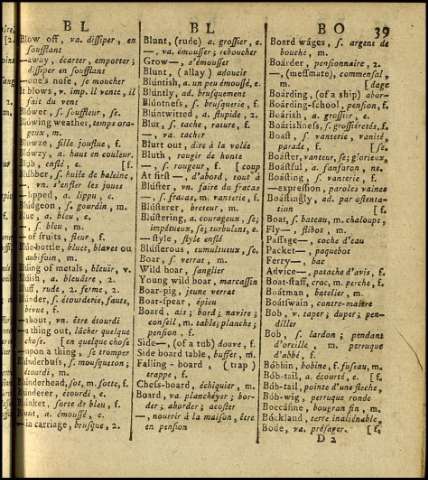 B L
B L
B O
39
Blow off, va. dissiper, en
soufflant
—away, écarter, emporter;
dissiper en soufflant
—one's nose, se moucher
it blows, v. imp. il vente, il
fait du vent
Blówer, s. souffleur, se.
Blówing weather, temps orageux, m.
Blowze, fille jouflue, f.
Blówzy, a. haut en couleur.
enflé, e [f.
Blúbber, s. huile de baleine,
—, vn. s'enfler les joues
lipped, a. lippu, e
Blúdgeon, s. gourdin, m.
Blue, a. bleu, e
—, s. bleu, m.
—of fruits, fleur, f.
Blue-bottle, bluet, blavet ou
aubifoin, m.
Bluing of metals, bleuir, v.
Blúish, a. bleuâtre, 2.
Bluff, rude, 2. ferme, 2.
Blúnder, s. étourderie, faute,
bevue, f.
—about, vn. être étourdi
—a thing out, lâcher quelque
chose. [en quelque chose
—upon a thing, se tromper
Blúnderbuss, s. mousqueton;
étourdi, m.
Blúnderhead, sot, m. sotte, f.
Blúnderer, étourdi, e.
Blánket, sorte de bleu, f.
Blunt, a. émoussé, e
—in carriage, brusque, 2
Blunt, (rude) a. grossier, e.
—, va. émousser; reboucher
Grow—, s'émousser
Blunt, (allay) adoucir
Blúntish, a. un peu émoussé, e.
Blúntly, ad. brusquement
Blúntness, s. brusquerie, f.
Bluntwitted, a. stupide, 2.
Blur, s. tache, rature, f.
—, va. tacher
Blurt out, dire à la volée
Blush, rougir de honte
—, s. rougeur, f. [coup
At first—, d'abord, tout à
Blúster, vn. faire du fracas
—, s. fracas, m. vanterie, f.
Blústerer, breteur, m.
Blústering, a. courageux, se;
impétueux, se; turbulent, e.
—style, style enflé
Blústerous, tumultueux, se.
Boar, s. verrat, m.
Wild boar, sanglier
Young wild boar, marcassin
Boar-pig, jeune verrat
Boar-spear, épieu
Board, ais; bord; navire;
conseil, m. table; planche;
pension. f.
Side—, (of a tub) douve, f.
Side board table, buffet, m.
Falling-board, (trap)
trappe, f.
Chess-board, échiquier, m.
Board, va. planchéyer; border; aborder; acoster
—, nourrir à la maison, être
en pension
Board wages, s. argent de
bouche, m.
Boárder, pensionnaire, 2.
—, (messmate), commensal,
m. [dage
Boárding, (of a ship) abor-
Boárding-school, pension, f.
Boárish, a. grossier, e.
Boárishness, s. grossiéreté, f.
Boast, s. vanterie, vanité,
parade, f. [se.
Boáster, vanteur, se; glorieux,
Boástful, a. fanfaron, ne.
Boásting, s. vanterie, f.
—expression, paroles vaines
Boástingly, ad. par ostentation [f.
Boat, s. bateau, m. chaloupe,
Fly—, flibot, m.
Passage—, coche d'eau
Packet—, paquebot
Ferry—, bac
Advice—, patache d'avis, f.
Boat-staff, croc, m. perche, f.
Boátman, batelier, m.
Boátswain, contre-maître
Bob, v. taper; duper; pendiller
Bob, s. lardon; pendant
d'oreille, m. perruque
d'abbé, f.
Bóbbin, bobine, f. fuseau, m.
Bób-tail, a. écourté, e. [f.
Bób-tail, pointe d'une fleche,
Bób-wig, perruque ronde
Boccásine, bougran fin, m.
Bóckland, terre inaliénable,
Bode, va. présager. [f.
D 2